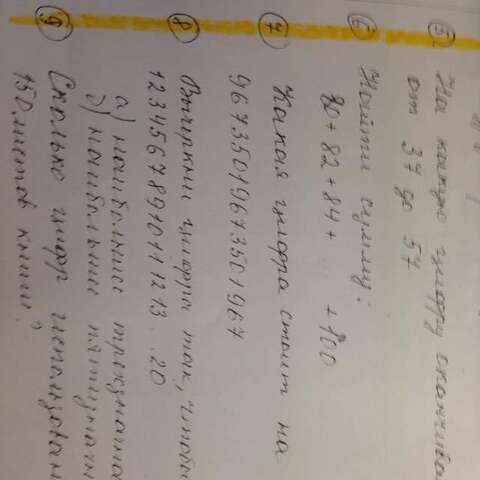 5. На какую цифру оканчива
от 37 до 57
6 Найти сумму:
80 + 82 + 84 + + 100
7 Какая цифра стоит на
96735019673501967
8 Вычеркни цифры так, чтобы
12345678910111213..20
а) наибольшее трёхзначно
б) наибольшее пятизначн
9 Сколько цифр использован
150 листов книги?